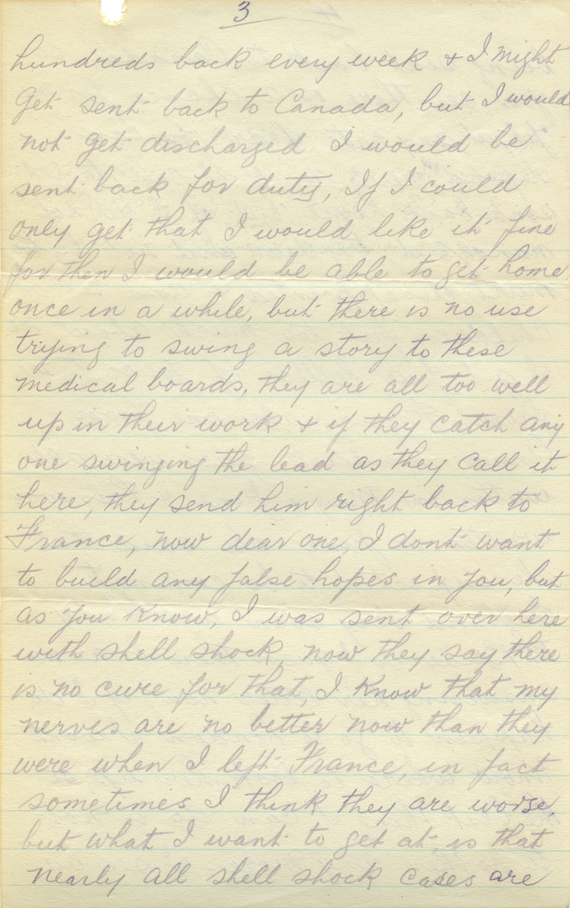 3
hundreds back every week & I might
get sent back to Canada, but I would
not get discharged I would be
sent back for duty, If I could
only get that I would like it fine
for then I would be able to get home
once in a while, but there is no use
trying to swing a story to these
medical boards, they are all too well
up in their work & if they catch any
one swinging the lead as they call it
here, they send him right back to
France, now dear one, I dont want
to build any false hopes in you, but
as you know, I was sent over here
with shell shock, now they say there
is no cure for that, I know that my
nerves are no better now than they
were when I left France, in fact
sometimes I think they are worse,
but what I want to get at, is that
nearly all shell shock cases are